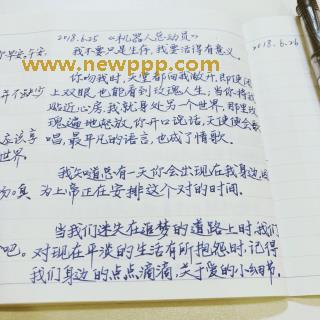 2018.6.25 《机器人总动员》
早安,午安,
我不要只是生存,我要活得有意义。
2018.6.26
www.newppp.com
你吻我时,天堂都向我敞开,即使闭
并不缺少
上双眼,也能看到玫瑰人生,当你将我
贴近心房,我就身处另一个世界,那里玫
瑰遍地怒放,你开口说话,天使便会歌
应该享
唱,最平凡的语言,也成了情歌。
世界.
我知道总有一天你会出现在我身边
为上帝正在安排这个对的时间.
当我们迷失在追梦的道路上时,我们
吧。
对现在平淡的生活有所抱怨时,记得
我们身边的点点滴滴,关于爱的小细节.